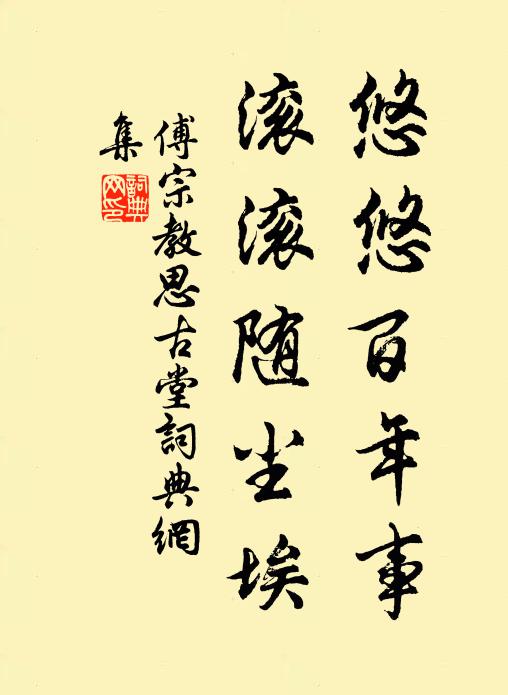 悠悠百年事
滚滚随尘埃
傅宗教思古堂詞典網
集
詞典
网印